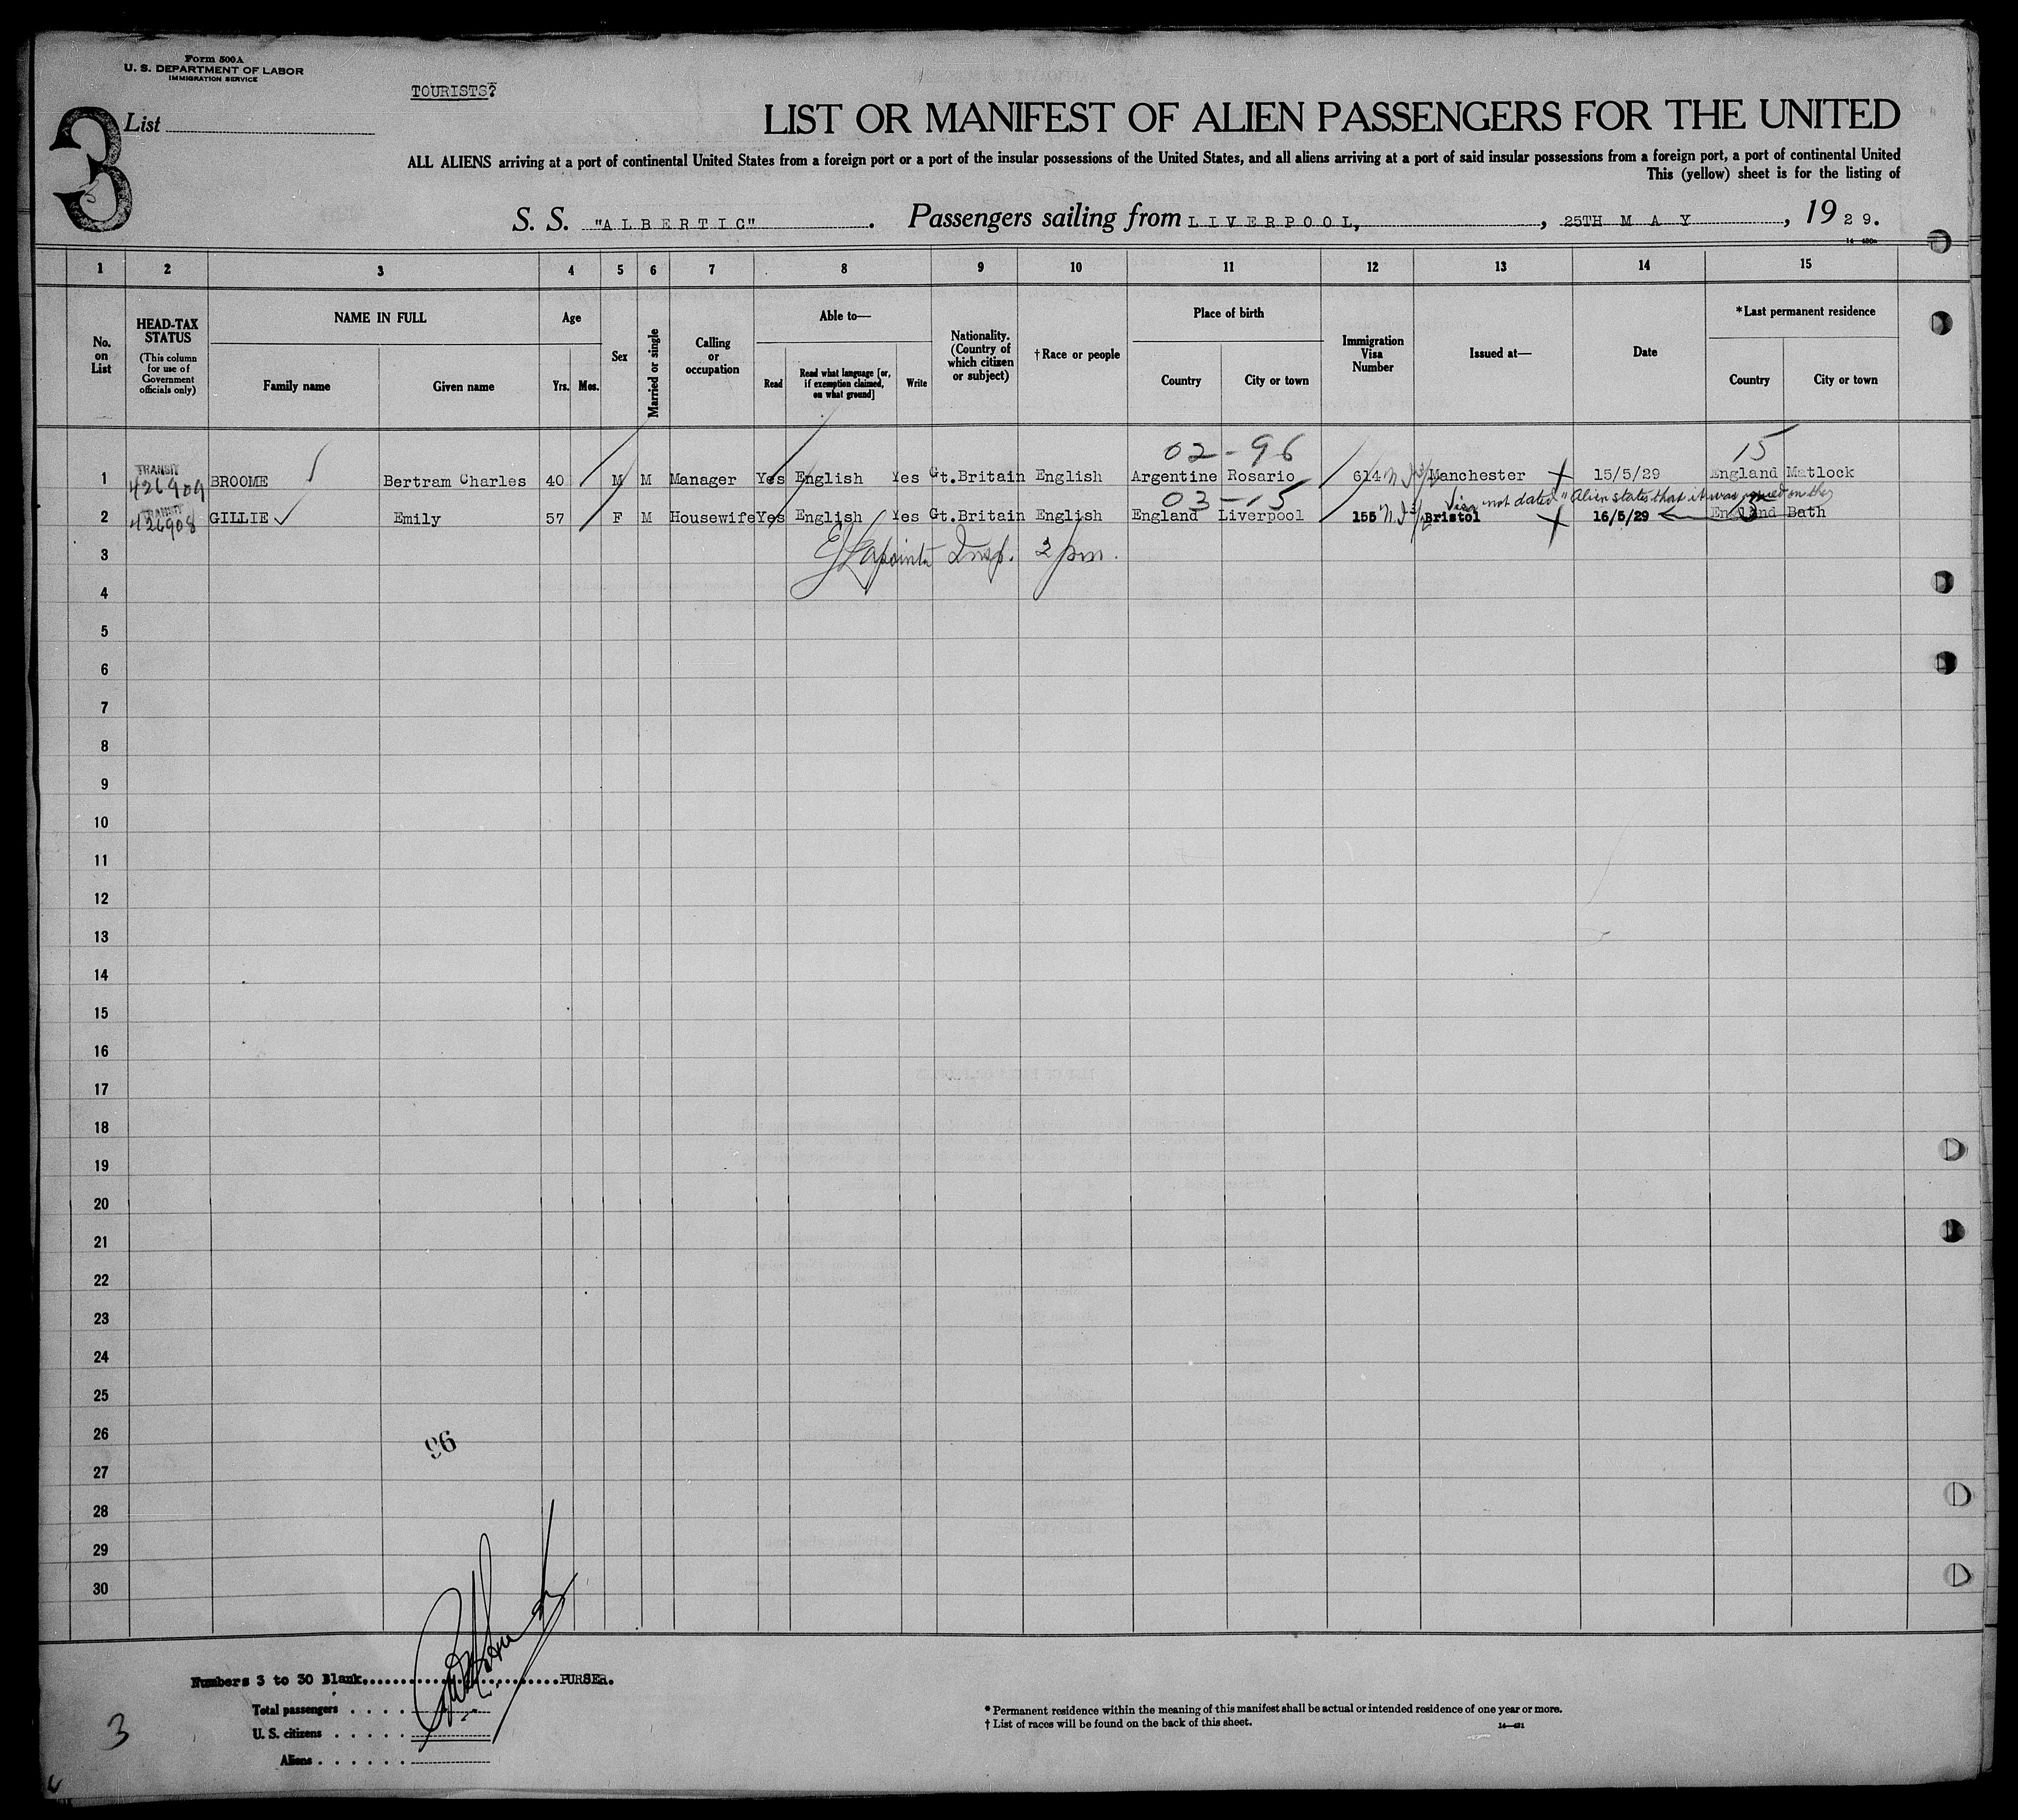 Form 500A
U. S. DEPARTMENT OF LABOR
IMMIGRATION SERVICE
TOURISTS?
3
List
LIST OR MANIFEST OF ALIEN PASSENGERS FOR THE UNITED
ALL ALIENS arriving at a port of continental United States from a foreign port or a port of the insular possessions of the United States, and all aliens arriving at a port of said insular possessions from a foreign port, a port of continental United
This (yellow) sheet is for the listing of
S. S. "ALBERTIC" . Passengers sailing from LIVERPOOL, , 25TH MAY , 1929.
1 2 3 4 5 6 7 8 9 10 11 12 13 14 15
No. on List
HEAD-TAX STATUS
(This column for use of Government officials only)
NAME IN FULL
Family name Given name
Age
Yrs. Mos.
Sex
Married or single
Calling or occupation
Able to—
Read
Read what language [or, if exemption claimed, on what ground]
Write
Nationality. (Country of which citizen or subject)
†Race or people
Place of birth
Country City or town
Immigration Visa Number
Issued at—
Date
*Last permanent residence
Country City or town
02-96 15
1 TRANSIT 426909 BROOME Bertram Charles 40 M M Manager Yes English Yes Gt.Britain English Argentine Rosario 614 Manchester 15/5/29 England Matlock
03-15 Visa not dated "Alien states that it was issued on the
2 TRANSIT 426908 GILLIE Emily 57 F M Housewife Yes English Yes Gt.Britain English England Liverpool 155 Bristol 16/5/29 England Bath
Insp. 2 pm.
3
4
5
6
7
8
9
10
11
12
13
14
15
16
17
18
19
20
21
22
23
24
25
26
96
27
28
29
30
Numbers 3 to 30 Blank PURSER.
Total passengers
U. S. citizens
Aliens
3
* Permanent residence within the meaning of this manifest shall be actual or intended residence of one year or more.
† List of races will be found on the back of this sheet.